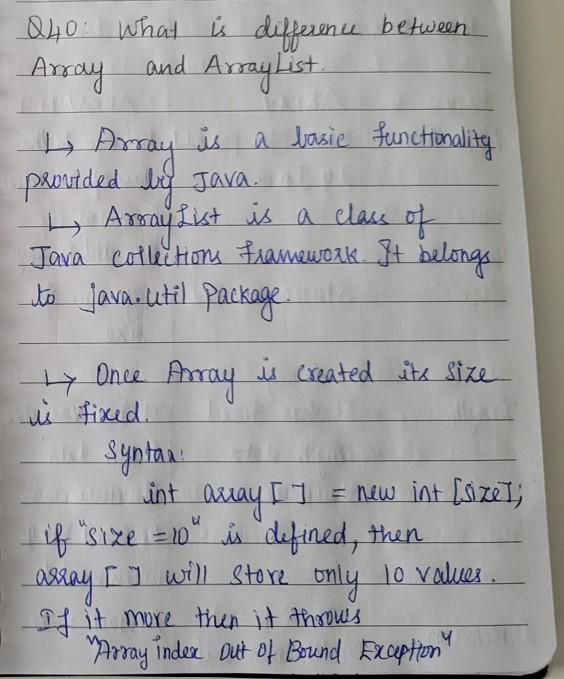 Q40: What is difference between
Array and ArrayList.
↳ Array is a basic functionality
provided by Java.
↳ ArrayList is a class of
Java collections framework. It belongs
to java.util package.
↳ Once Array is created its size
is fixed.
Syntax:
int array [ ] = new int [size];
if "size = 10" is defined, then
array [ ] will store only 10 values.
If it more then it throws
"Array index Out Of Bound Exception"